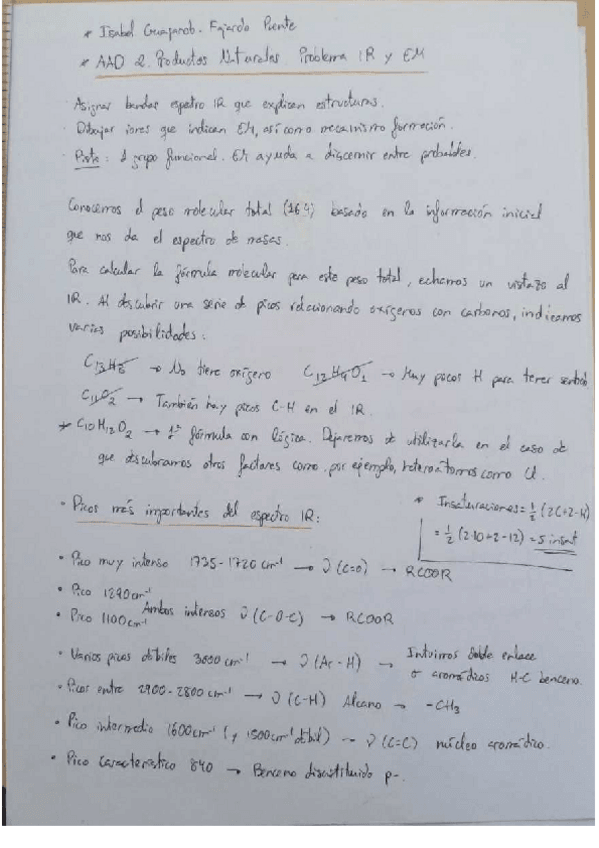 * Isabel Guaparob. Fajardo Puente
* AAD 2. Productos Naturales Problema IR y EM
· Asignar bandas espectro IR que explican estructuras.
· Dibujar iones que indican EM, así como mecanismo formación.
· Pista: 1 grupo funcional. EM ayuda a discernir entre probables.
Conocemos el peso molecular total (164) basado en la información inicial
que nos da el espectro de masas.
Para calcular la fórmula molecular para este peso total, echamos un vistazo al
IR. Al descubrir una serie de picos relacionando oxígenos con carbonos, indicamos
varias posibilidades:
C13H8 → No tiene oxígeno C12H4O1 → Muy pocos H para tener sentido
C11O2 → También hay picos C-H en el IR.
* C10H12O2 → 1ª fórmula con lógica. Dejaremos de utilizarla en el caso de
que descubramos otros factores como por ejemplo, heteroátomos como Cl.
* Insaturaciones = 1/2 (2C+2-H)
= 1/2 (2·10+2-12) = 5 insat
· Picos más importantes del espectro IR:
· Pico muy intenso 1735-1720 cm-1 → ν (C=O) → RCOOR
· Pico 1290 cm-1
· Pico 1100 cm-1 Ambos intensos ν (C-O-C) → RCOOR
· Varios picos débiles 3000 cm-1 → ν (Ar-H) → Intuimos doble enlace
o aromáticos H-C benceno
· Picos entre 2900-2800 cm-1 → ν (C-H) Alcano → -CH3
· Pico intermedio 1600 cm-1 (y 1500 cm-1 débil) → ν (C=C) núcleo aromático.
· Pico característico 840 → Benceno disustituido p-.